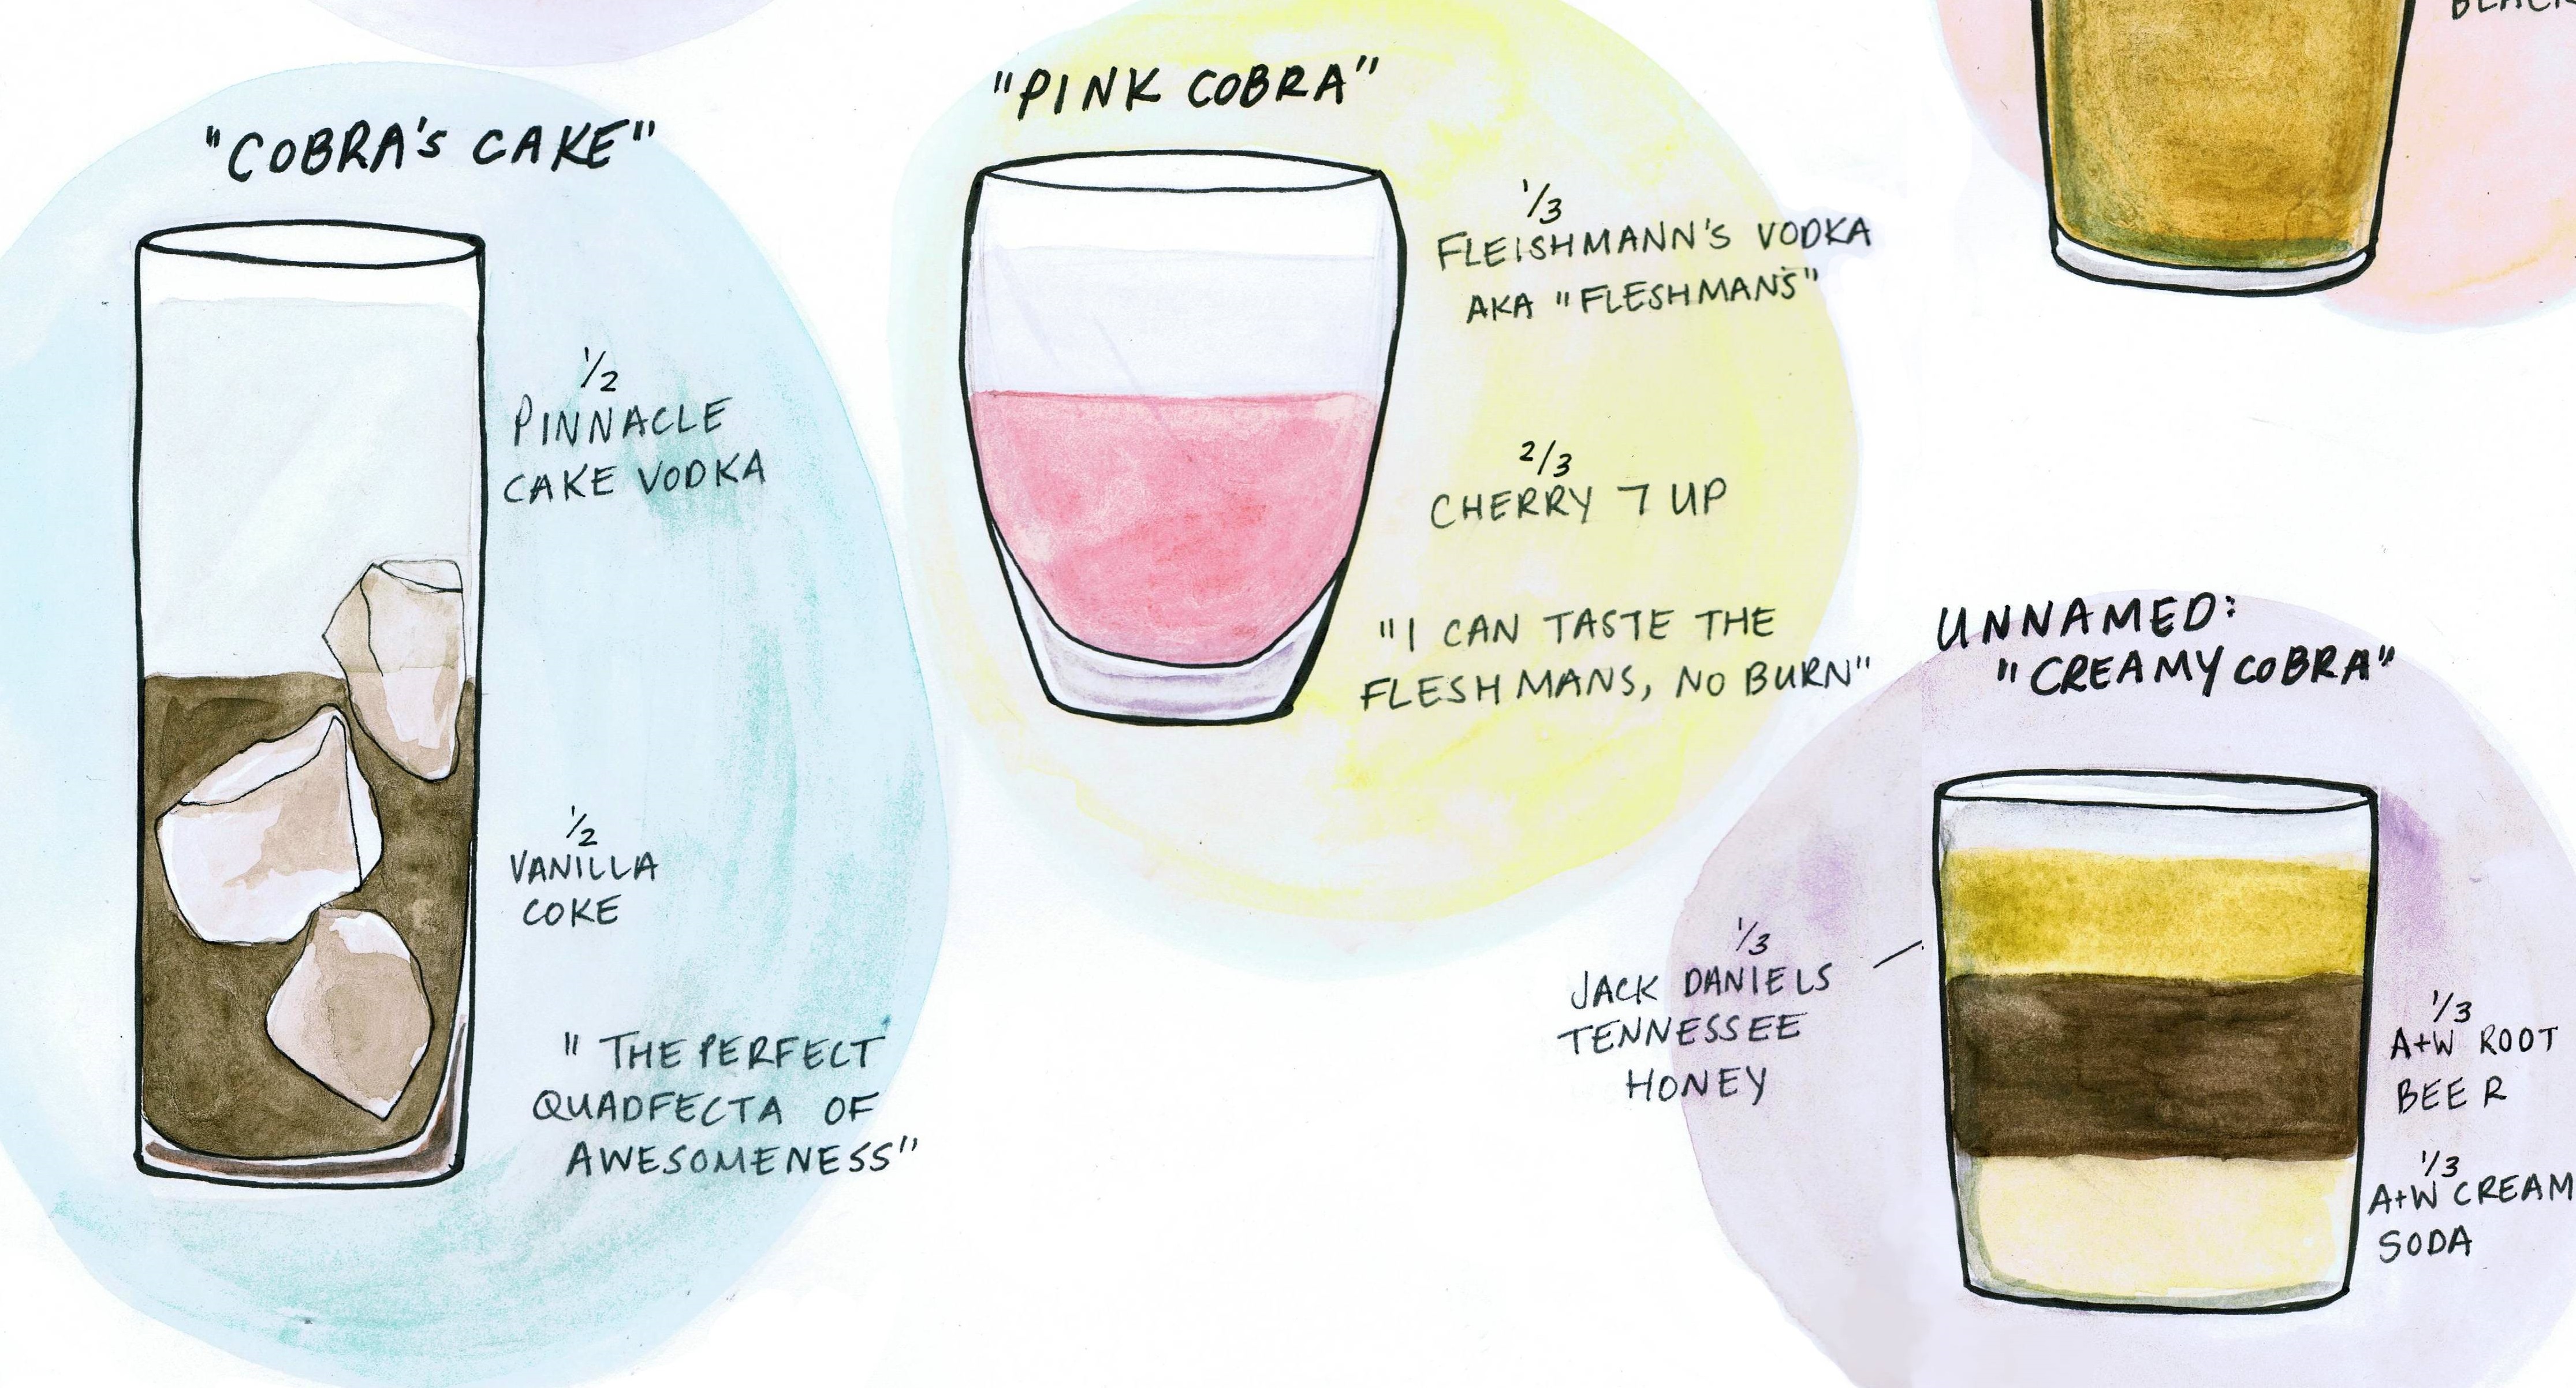 "COBRA's CAKE"
1/2
PINNACLE
CAKE VODKA
1/2
VANILLA
COKE
"THE PERFECT
QUADFECTA OF
AWESOMENESS"
"PINK COBRA"
1/3
FLEISHMANN'S VODKA
AKA "FLESHMAN'S"
2/3
CHERRY 7 UP
"I CAN TASTE THE
FLESHMANS, NO BURN"
UNNAMED:
"CREAMY COBRA"
1/3
JACK DANIELS
TENNESSEE
HONEY
1/3
A+W ROOT
BEER
1/3
A+W CREAM
SODA